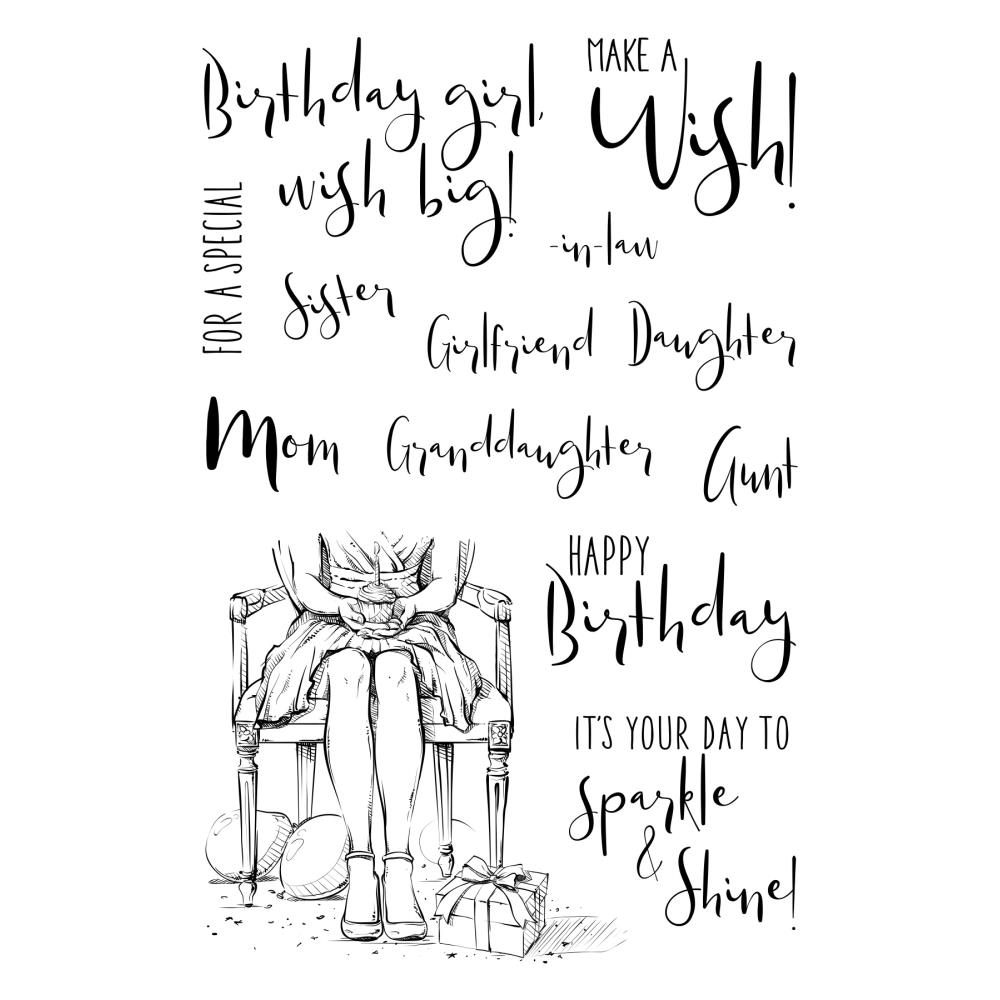 Birthday girl,
wish big!
MAKE A
Wish!
FOR A SPECIAL
-in-law
Sister
Girlfriend
Daughter
Mom
Granddaughter
Aunt
HAPPY
Birthday
IT'S YOUR DAY TO
Sparkle
&
Shine!